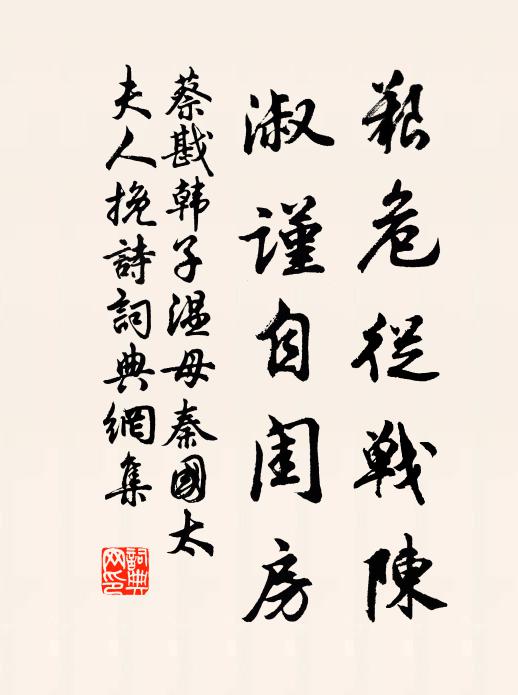 艱危從戰陳
淑謹自閨房
蔡戡韩子温母秦國太
夫人挽詩詞典網集
詞典网印